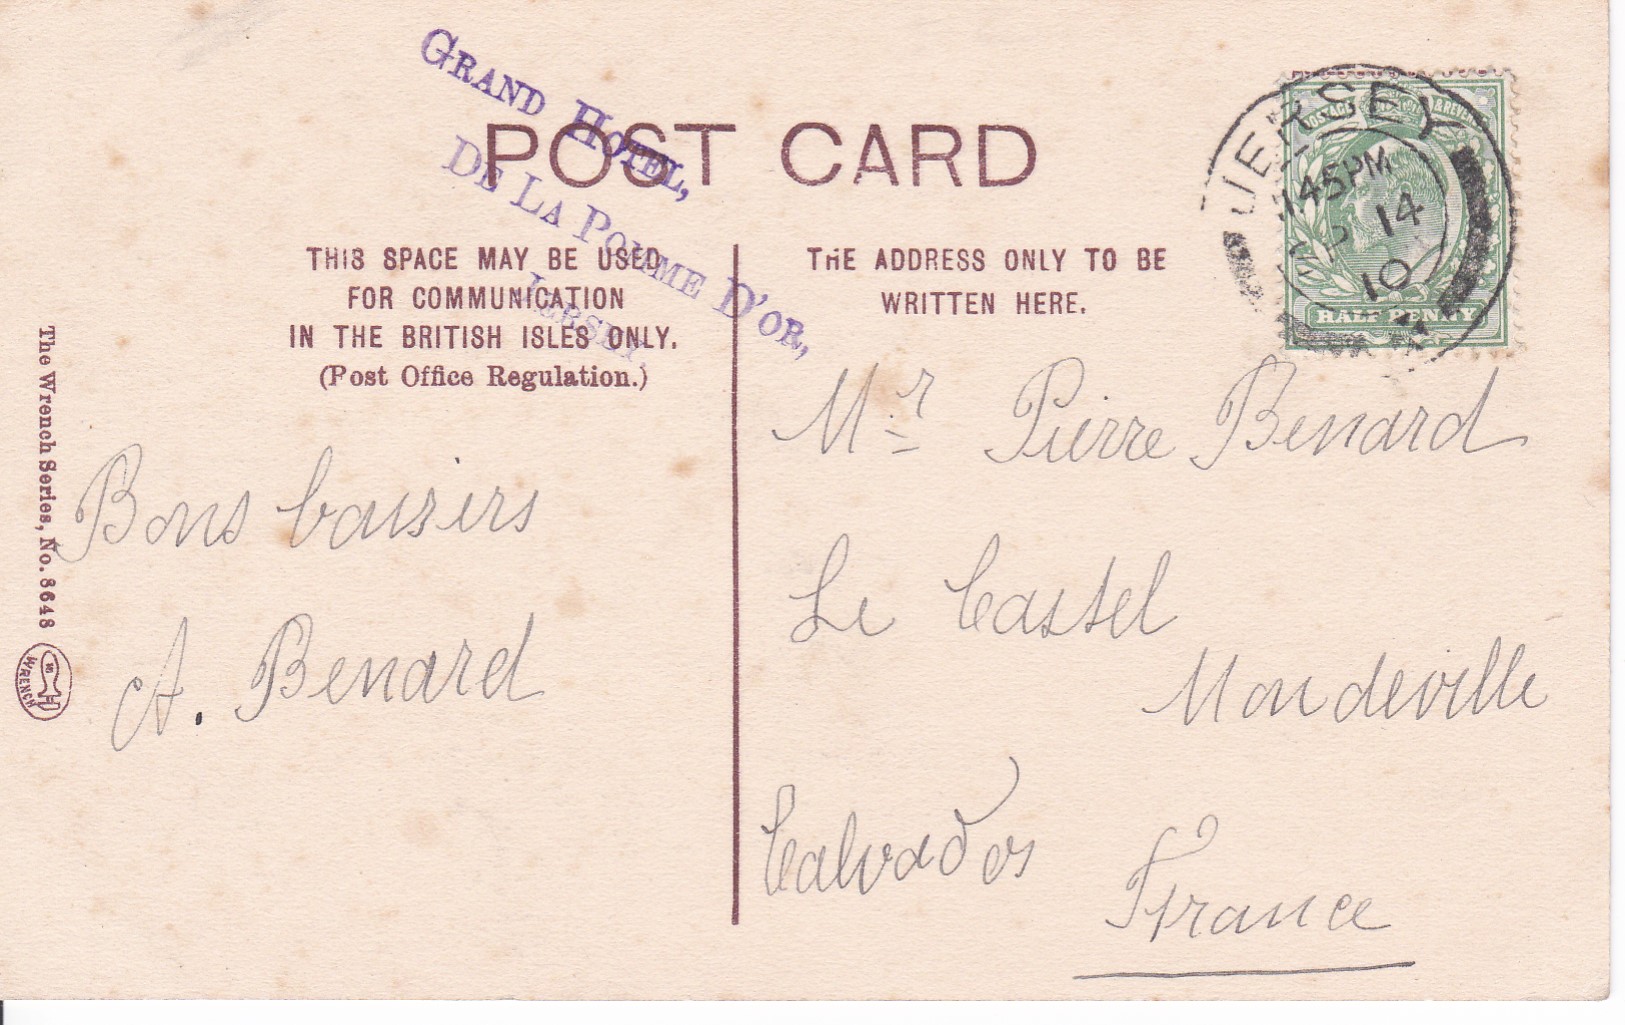 GRAND HOTEL,
DE LA POMME D'OR,
JERSEY.
POST CARD
THIS SPACE MAY BE USED
FOR COMMUNICATION
IN THE BRITISH ISLES ONLY.
(Post Office Regulation.)
THE ADDRESS ONLY TO BE
WRITTEN HERE.
JERSEY
45 PM
14
10
POSTAGE & REVENUE
HALF PENNY
The Wrench Series, No. 8648
WRENCH
Bons baisers
A. Benard
Mr Pierre Benard
Le Castel
Mondeville
Calvados
France